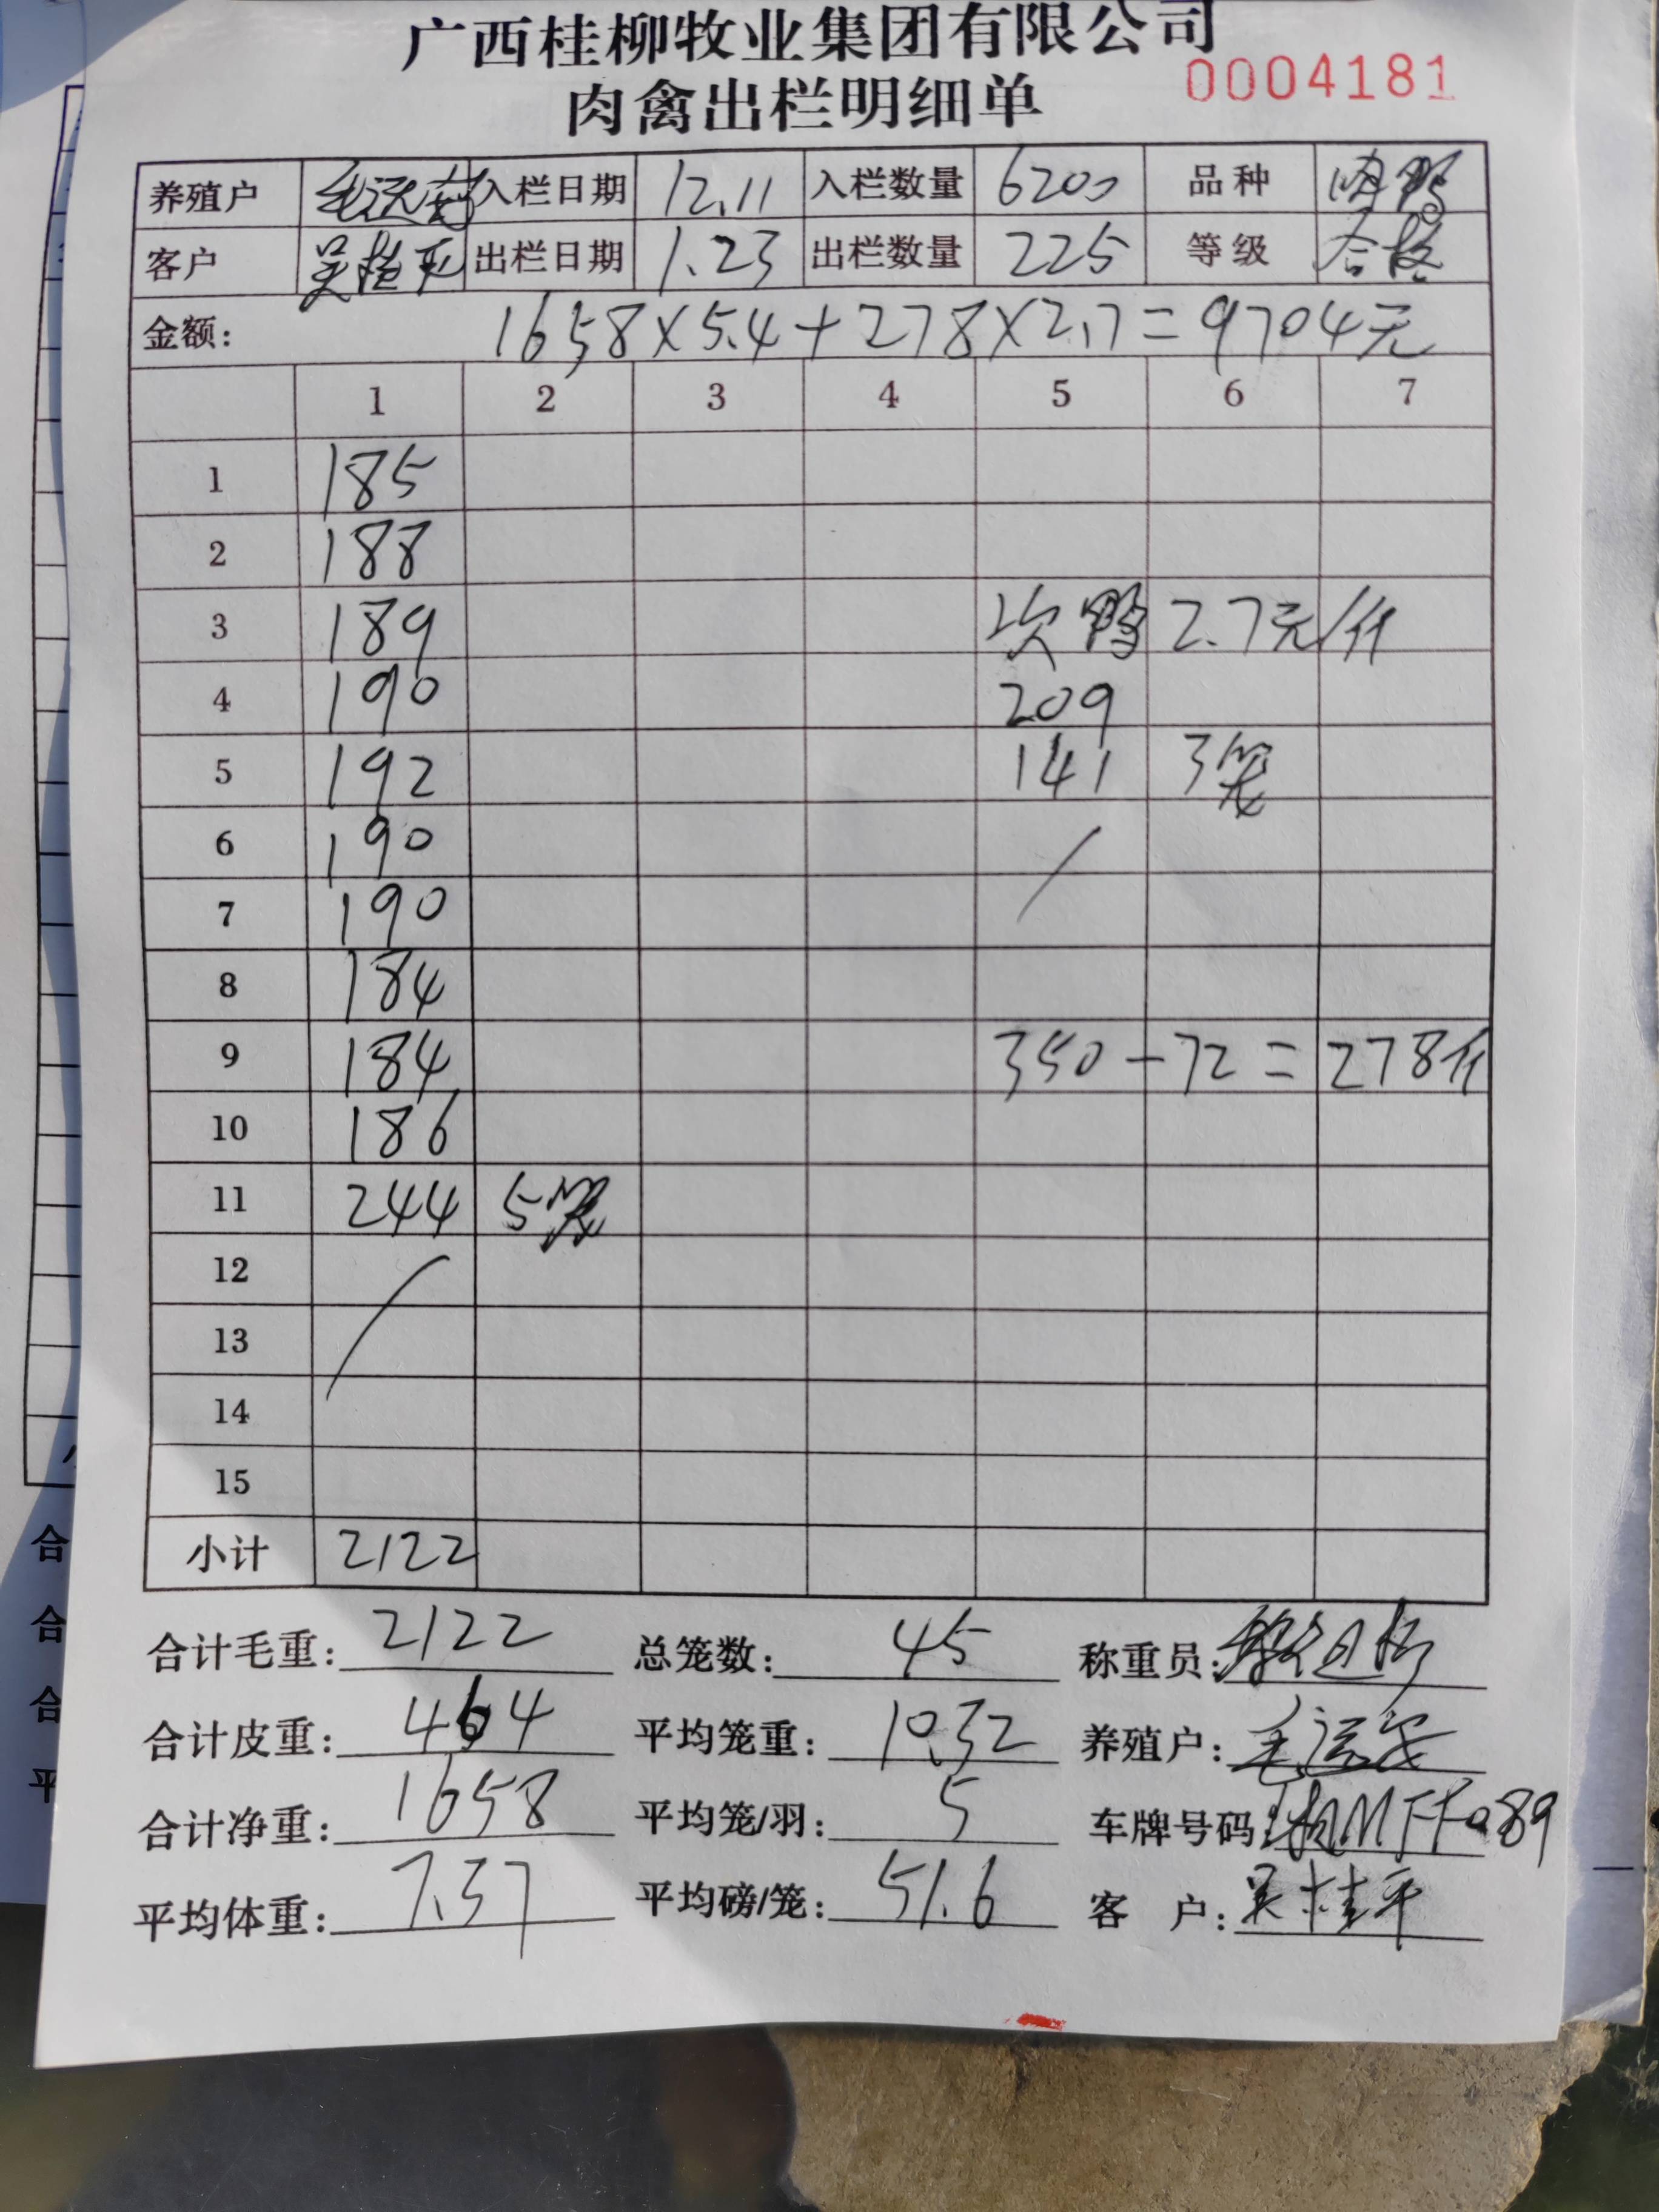 广西桂柳牧业集团有限公司
肉禽出栏明细单 0004181
养殖户 入栏日期 12.11 入栏数量 6200 品种
客户 吴桂平 出栏日期 1.23 出栏数量 225 等级 合格
金额: 1658×5.4+278×2.7=9704元
1 2 3 4 5 6 7
1 185
2 188
3 189 次鸭 2.7元/斤
4 190 209
5 192 141 3笼
6 190
7 190
8 184
9 184 350-72=278斤
10 186
11 244 5笼
12
13
14
15
小计 2122
合计毛重: 2122 总笼数: 45 称重员:
合计皮重: 464 平均笼重: 10.32 养殖户:
合计净重: 1658 平均笼/羽: 5 车牌号码:
平均体重: 7.37 平均磅/笼: 51.6 客 户: 吴桂平
合
合
合
平